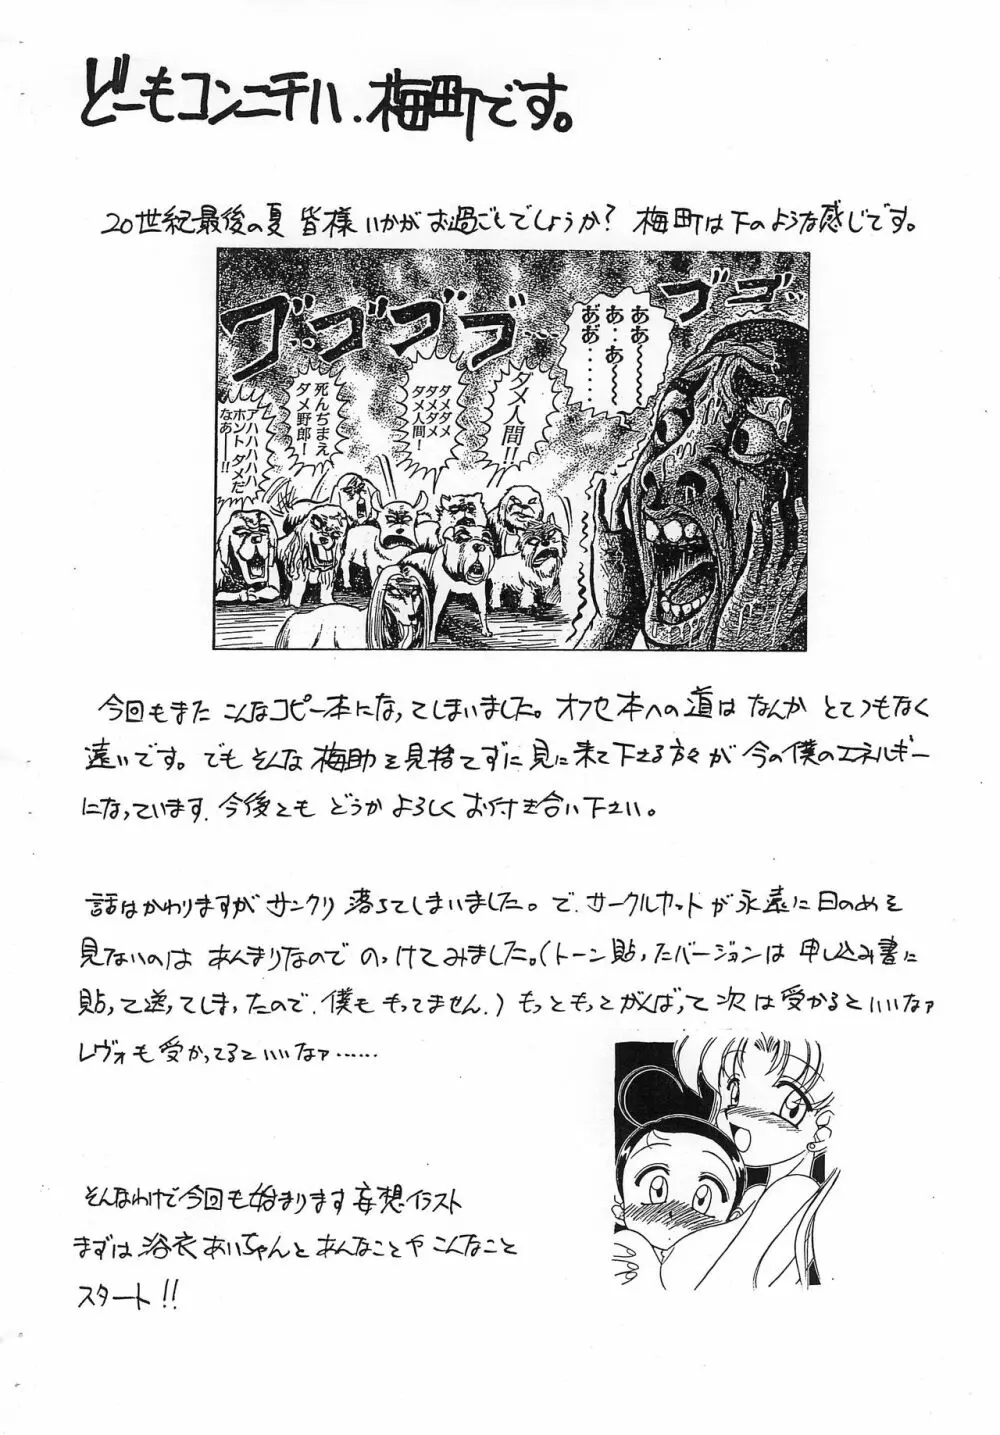 どーもコンニチハ、梅町です。
20世紀最後の夏 皆様いかがお過ごしでしょうか? 梅町は下のような感じです。
ゴゴ…
ああ〜〜
あ…あ〜〜
あ゛あ゛……
ゴゴゴゴ…
ダメ人間!!
ダメダメ
ダメダメ
ダメ人間!
死んちまえ
ダメ野郎!
アハハハハハ
ホントダメだ
なあー!!
今回もまた こんなコピー本になってしまいました。オフセ本への道は なんか とてつもなく
遠いです。でも そんな 梅助を見捨てずに見に来て下さる方々が 今の僕のエネルギー
になっています。今後とも どうか よろしく お付き合い下さい。
話はかわりますが サンクリ 落ちてしまいました。で、サークルカットが永遠に日のめを
見ないのは あんまりなので のっけてみました。(トーン貼ったバージョンは 申し込み書に
貼って送ってしまったので、僕も もってません。) もっともっとがんばって 次は受かるといいなァ
レヴォも受かってるといいなァ……
そんなわけで今回も始まります妄想イラスト
まずは 浴衣あいちゃんと あんなことや こんなこと
スタート!!